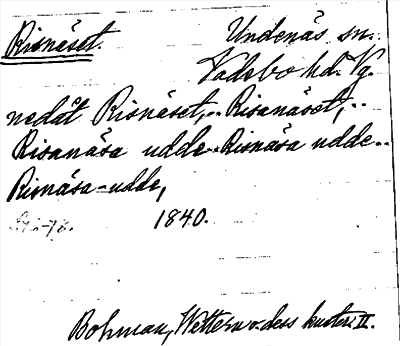 Risnäset. Undenäs sn.
Vadsbo hd. Vg.
nedåt Risnäset, .. Risanäset, ..
Risanäsa udde .. Risnäsa udde ..
Risnäsa-udde,
1840.
Bohman, Wettern o. dess kuster II.